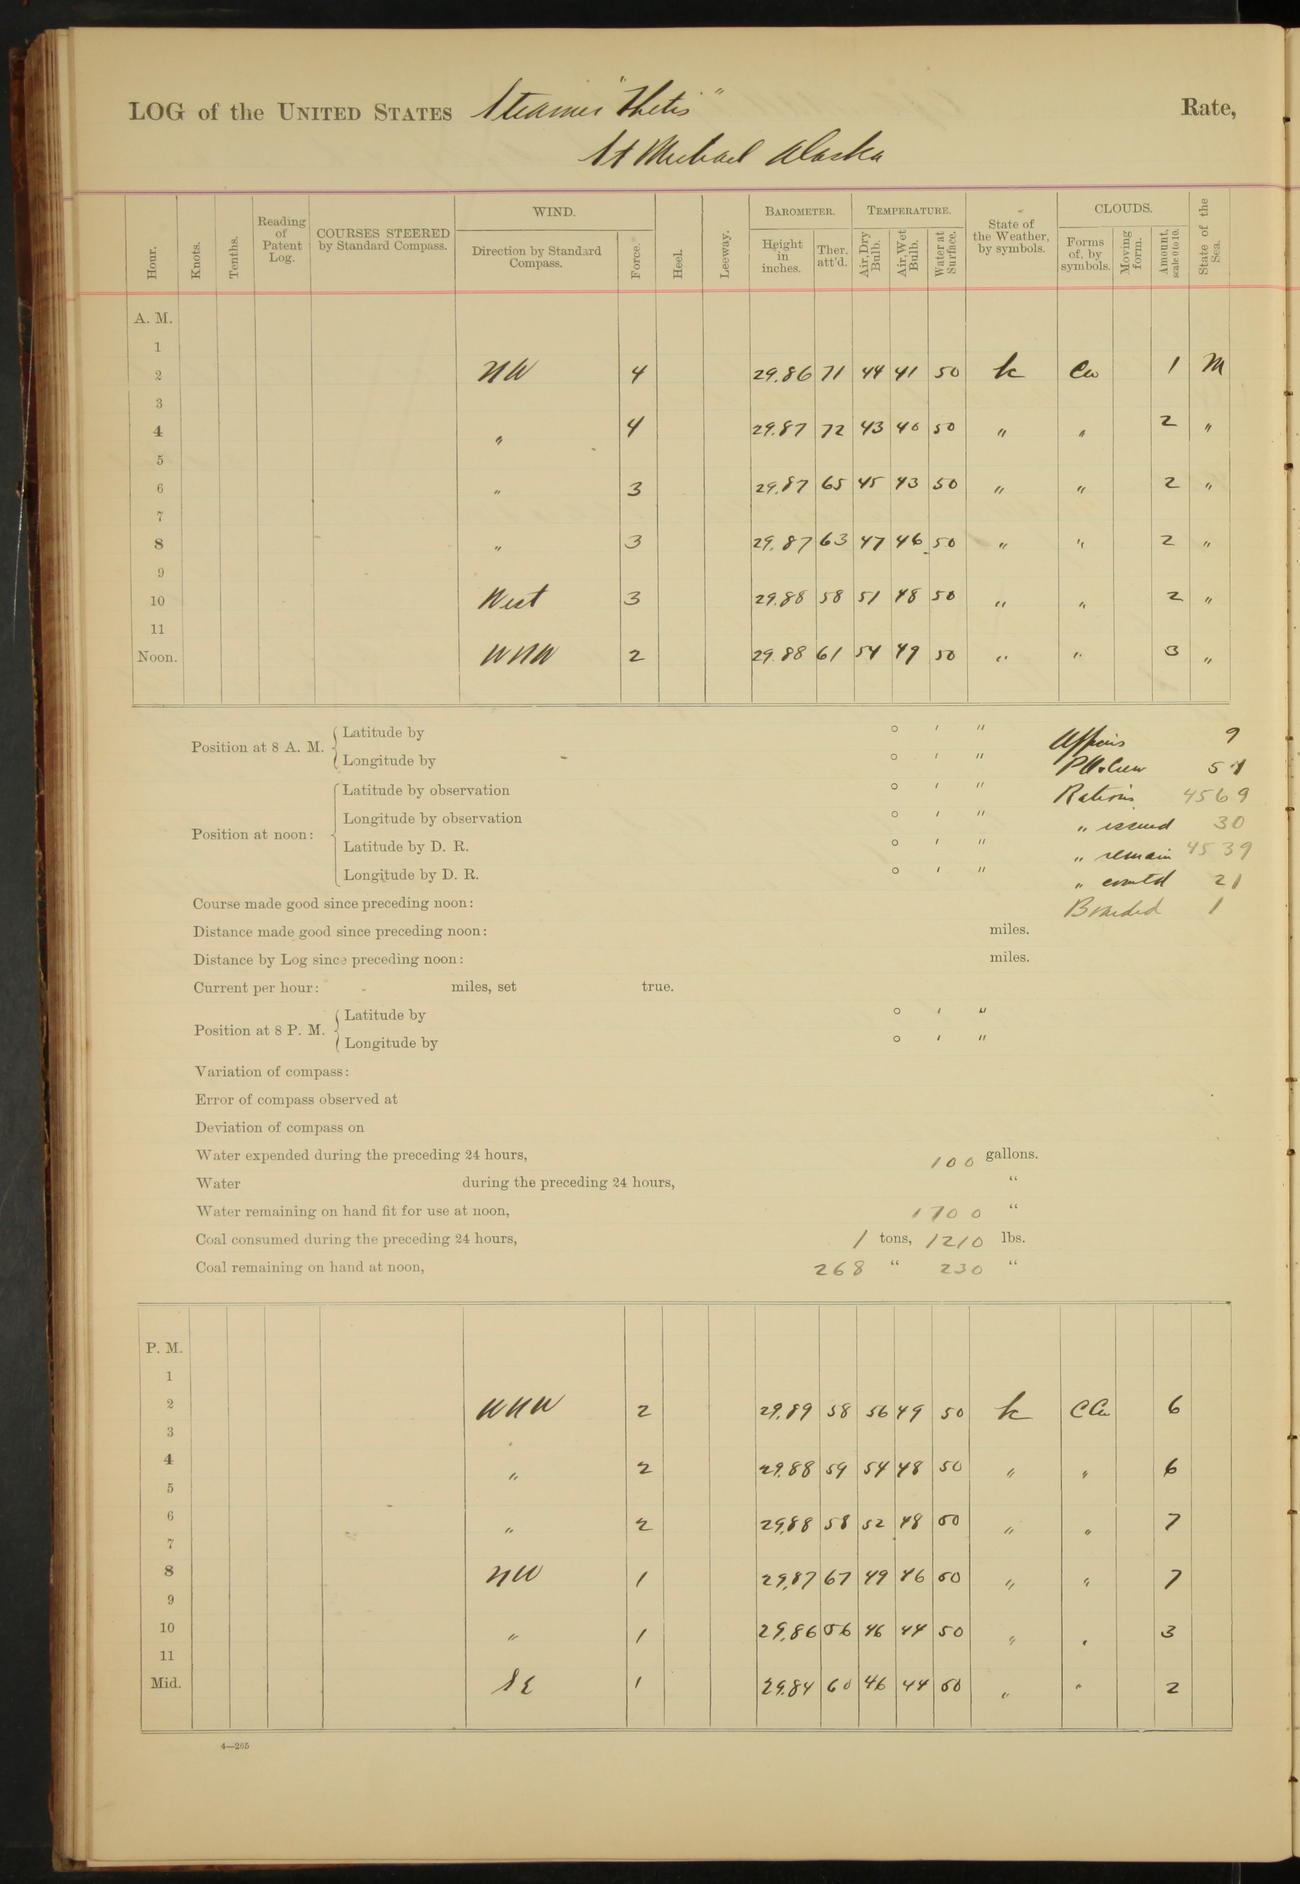 LOG of the UNITED STATES Steamer "Thetis" Rate,
St Michael Alaska
Hour. Knots. Tenths. Reading of Patent Log. COURSES STEERED by Standard Compass. WIND. Direction by Standard Compass. Force. Heel. Leeway. BAROMETER. Height in inches. Ther. att'd. TEMPERATURE. Air, Dry Bulb. Air, Wet Bulb. Water at Surface. State of the Weather, by symbols. CLOUDS. Forms of, by symbols. Moving form. Amount, scale 0 to 10. State of the Sea.
A. M.
1
2 NW 4 29.86 71 44 41 50 bc Cu 1 M
3
4 " 4 29.87 72 43 40 50 " " 2 "
5
6 " 3 29.87 65 45 43 50 " " 2 "
7
8 " 3 29.87 63 47 46 50 " " 2 "
9
10 West 3 29.88 58 51 48 50 " " 2 "
11
Noon. WNW 2 29.88 61 54 49 50 " " 3 "
Position at 8 A. M. Latitude by ° ' " Officers 9
Longitude by ° ' " P.O. & Crew
Position at noon: Latitude by observation ° ' " Rations 4569
Longitude by observation ° ' " " issued 30
Latitude by D. R. ° ' " " remain 4539
Longitude by D. R. ° ' " " comtd 21
Course made good since preceding noon: Boarded 1
Distance made good since preceding noon: miles.
Distance by Log since preceding noon: miles.
Current per hour: miles, set true.
Position at 8 P. M. Latitude by ° ' "
Longitude by ° ' "
Variation of compass:
Error of compass observed at
Deviation of compass on
Water expended during the preceding 24 hours, 100 gallons.
Water during the preceding 24 hours, "
Water remaining on hand fit for use at noon, 1700 "
Coal consumed during the preceding 24 hours, 1 tons, 1210 lbs.
Coal remaining on hand at noon, 268 " 230 "
P. M.
1
2 WNW 2 29.89 58 56 49 50 bc CCu 6
3
4 " 2 29.88 59 54 48 50 " " 6
5
6 " 2 29.88 58 52 48 50 " " 7
7
8 NW 1 29.87 67 49 46 50 " " 7
9
10 " 1 29.86 56 46 44 50 " " 3
11
Mid. SE 1 29.84 60 46 44 50 " " 2
4—265